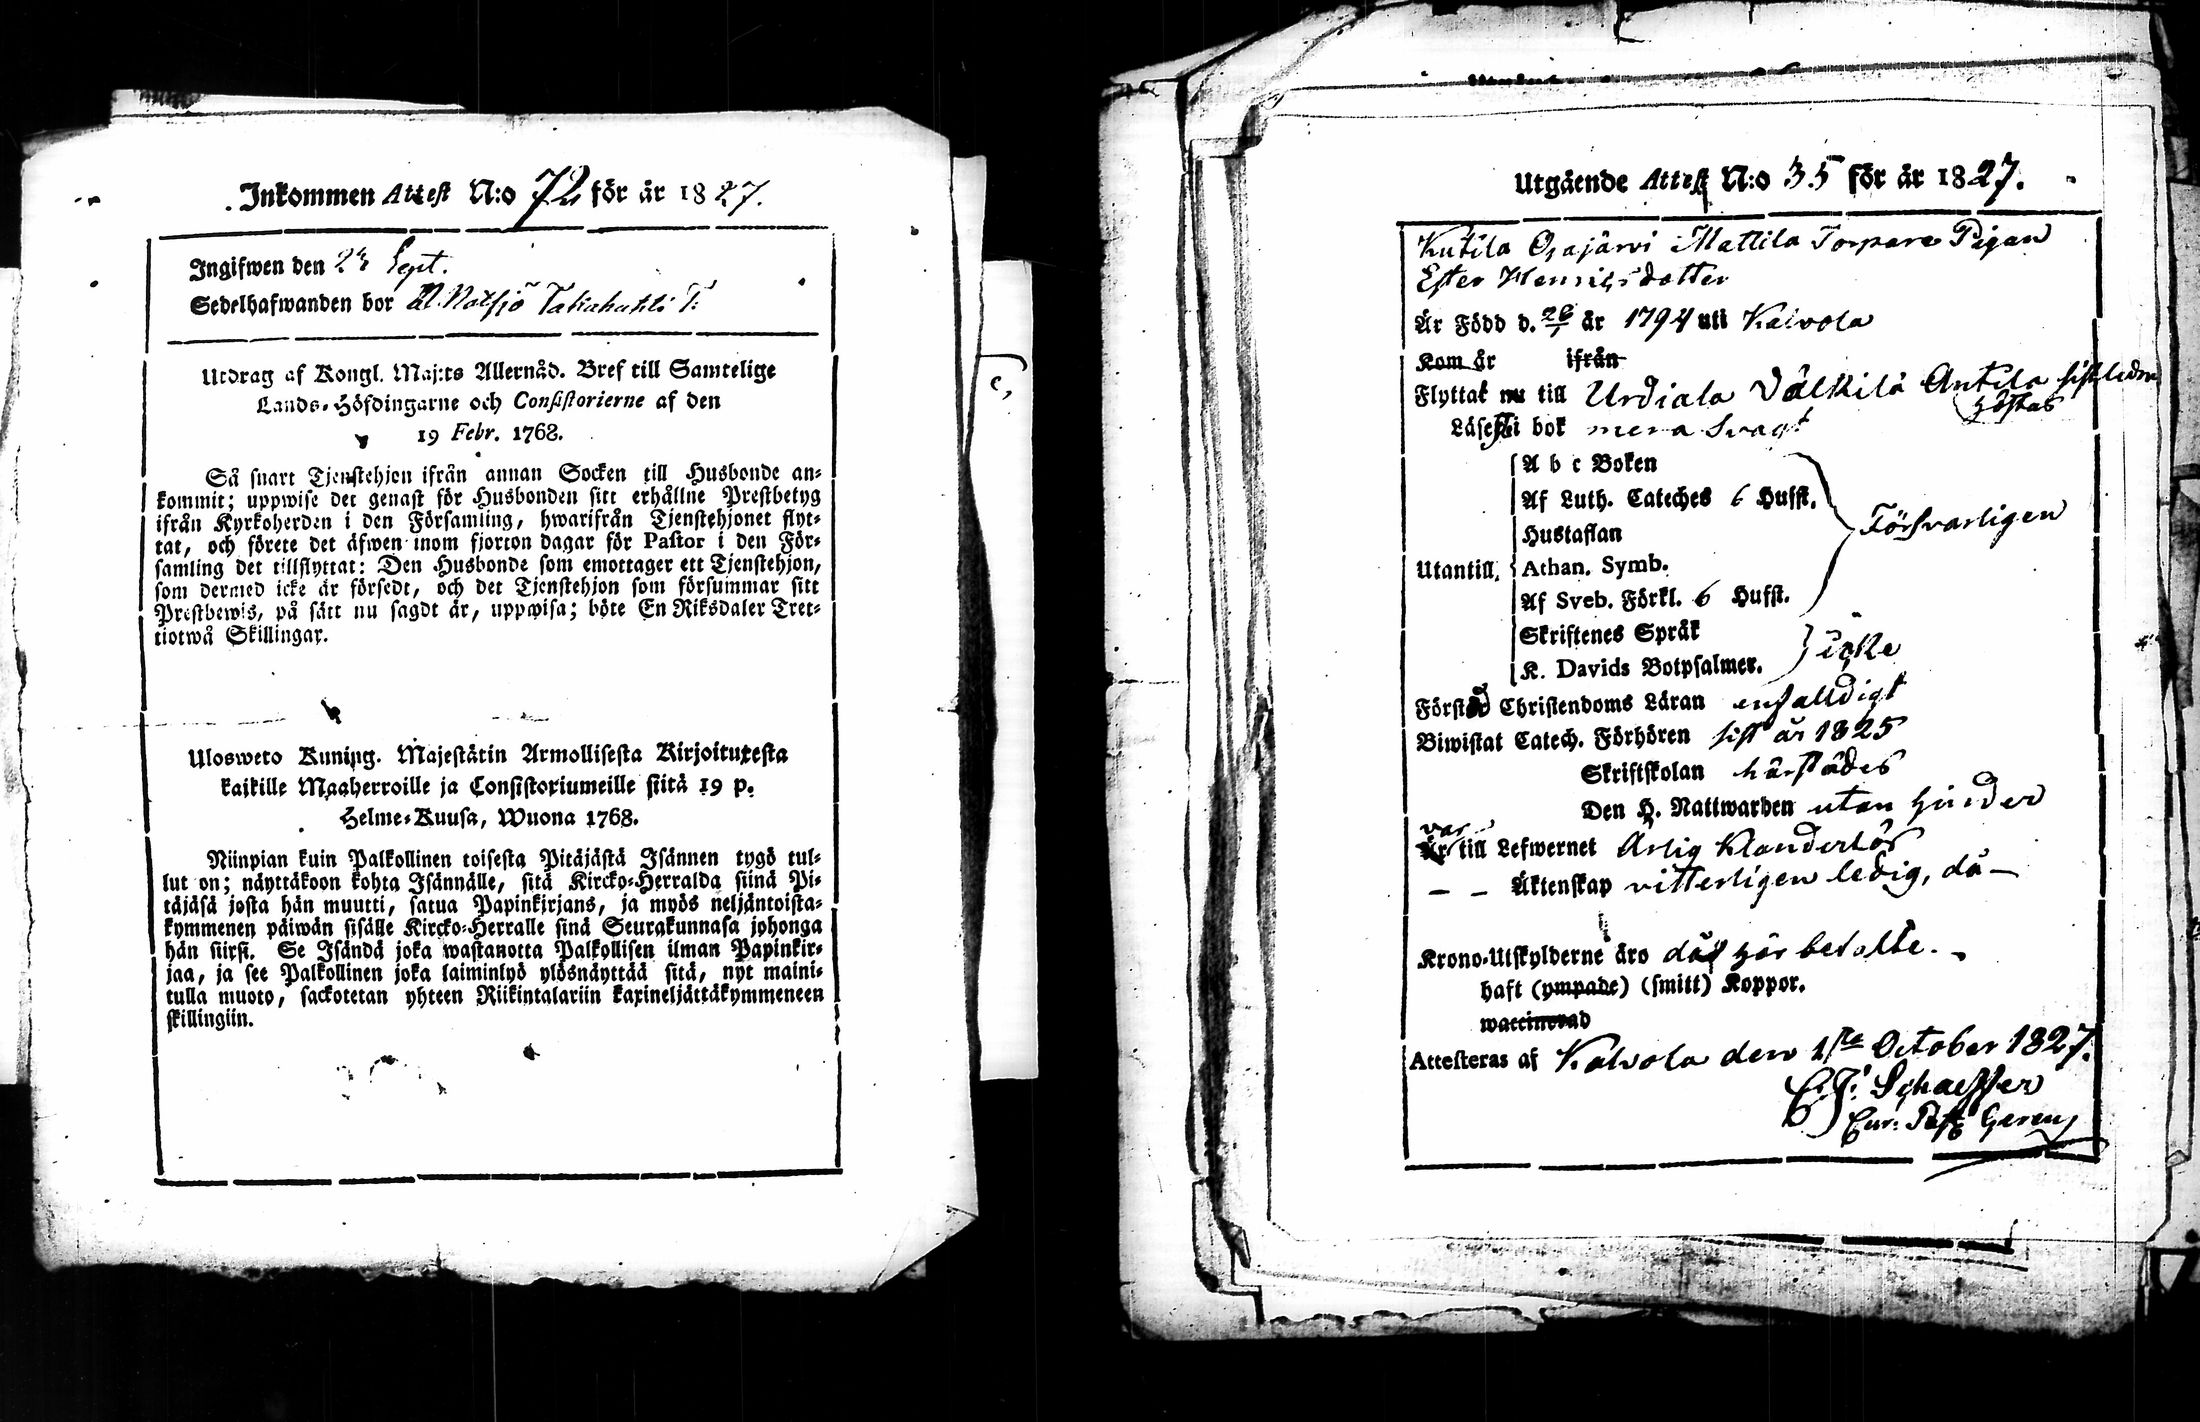 Inkommen Attest N:o 72 för år 1827.
Ingifwen den Sept.
Sedelhafwanden bor
Utdrag af Kongl. Maj:ts Allernåd. Bref till Samtelige
Lands-Höfdingarne och Consistorierne af den
19 Febr. 1768.
Så snart Tjenstehjon ifrån annan Socken till Husbonde an-
kommit; uppwise det genast för Husbonden sitt erhållne Prestbetyg
ifrån Kyrkoherden i den Församling, hwarifrån Tjenstehjonet flyt-
tat, och förete det äfwen inom fjorton dagar för Pastor i den För-
samling det tillflyttat: Den Husbonde som emottager ett Tjenstehjon,
som dermed icke är försedt, och det Tjenstehjon som försummar sitt
Prestbewis, på sätt nu sagdt är, uppwisa; böte En Riksdaler Tret-
tiotwå Skillingar.
Ulosweto Kuning. Majestätin Armollisesta Kirjoituxesta
kaikille Maaherroille ja Consistoriumeille siitä 19 p.
Helme-Kuusa, Wuona 1768.
Niinpian kuin Palkollinen toisesta Pitäjästä Isännen tygö tul-
lut on; näyttäkoon kohta Isännälle, sitä Kircko-Herralda siinä Pi-
täjäsä josta hän muutti, satua Papinkirjans, ja myös neljäntoista-
kymmenen päiwän sisälle Kircko-Herralle sinä Seurakunnasa johonga
hän siirsi. Se Isändä joka wastanotta Palkollisen ilman Papinkir-
jaa, ja see Palkollinen joka laiminlyö ylösnäyttää sitä, nyt maini-
tulla muoto, sackotetan yhteen Riikintalariin kaxineljättäkymmeneen
skillingiin.
Utgående Attest N:o 35 för år 1827.
Kutila Ojajärvi Mattila Torpare Pigan
Ester Henricsdotter
Är Född d. 26/1 år 1794 uti Kalvola
Kom år ifrån
Flyttat nu till Urdiala Välkilä Antila sistledne
höstas
Läser i bok mera svagt
A b c Boken
Af Luth. Cateches 6 Hufst.
Hustaflan
Försvarligen
Utantill, Athan. Symb.
Af Sveb. Förkl. 6 Hufst.
Skriftenes Språk
K. Davids Botpsalmer. icke
Förstår Christendoms Läran enfalldigt
Biwistat Catech. Förhören sist år 1825
Skriftskolan härstädes
Den H. Nattwarden utan hinder
var
Är till Lefwernet Ärlig Klanderlös
– – Äktenskap vitterligen ledig, då –
Krono-Utskylderne äro då här betalte. –
haft (ympade) (smitt) Koppor.
waccinerad
Attesteras af Kalvola den 1sta October 1827.
C. J. Schaeffer
Cur: Past: Gerens